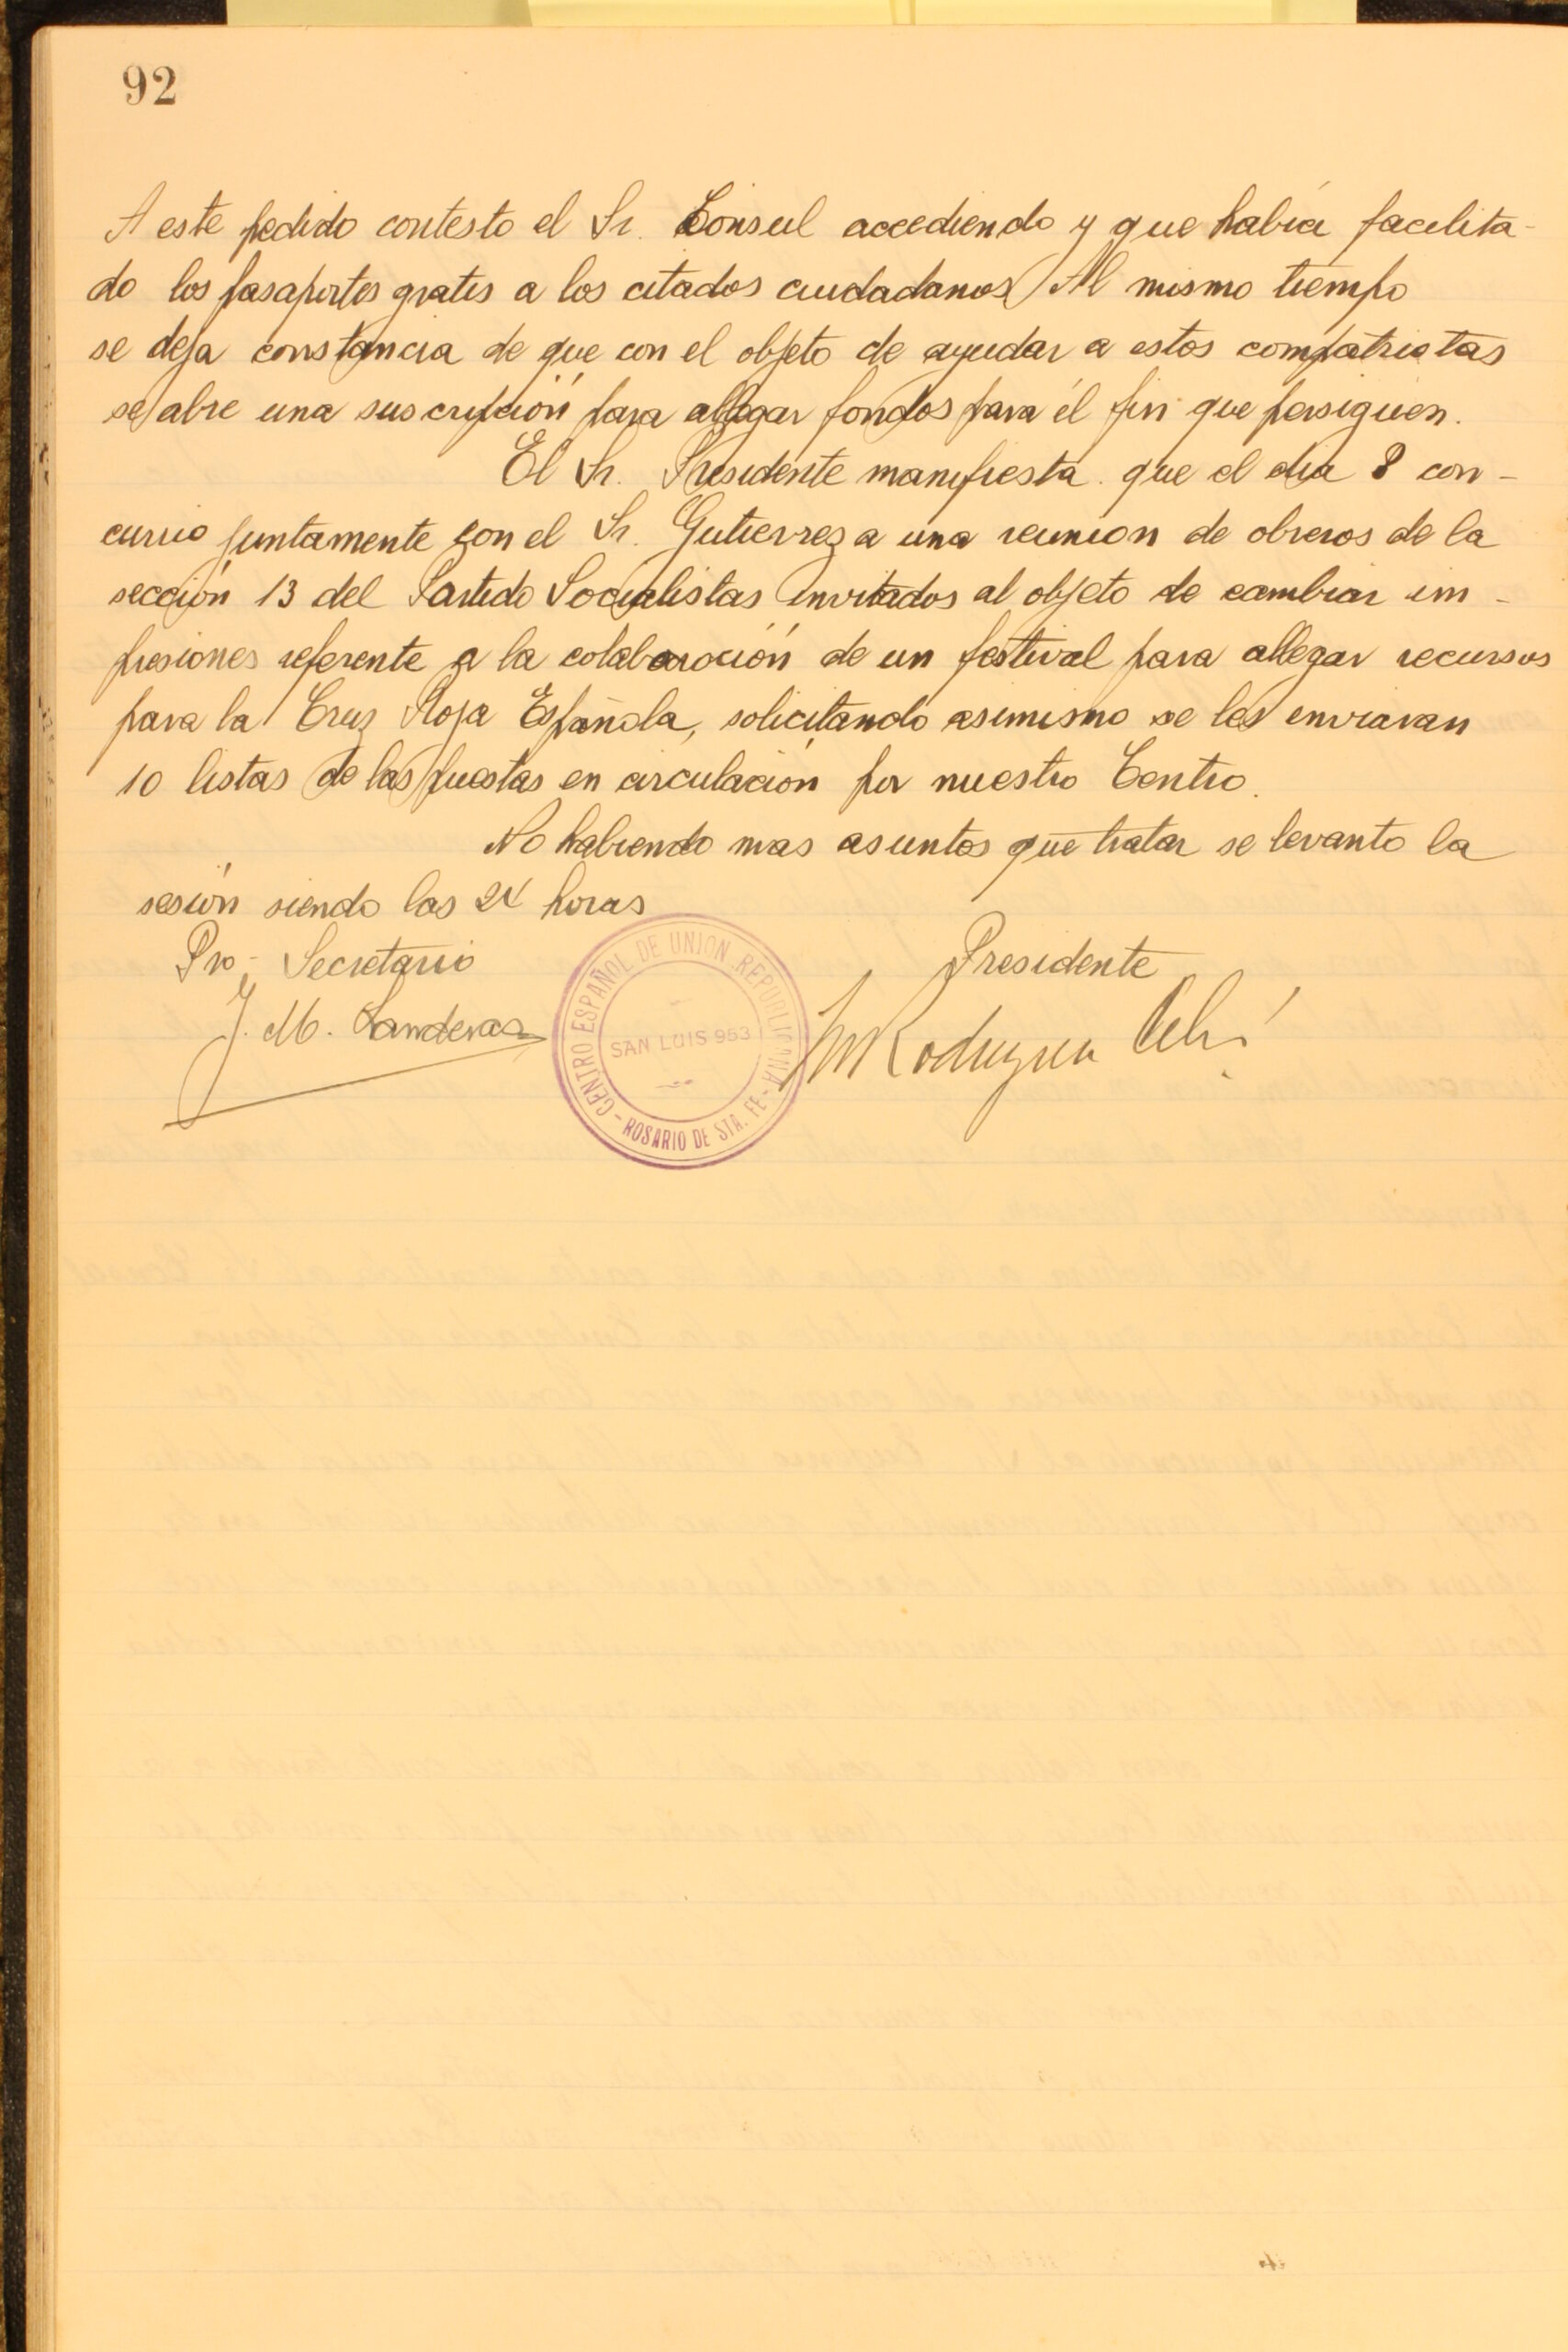 92
A este pedido contesto el Sr. Consul accediendo y que había facilita-
do los pasaportes gratis a los citados ciudadanos Al mismo tiempo
se deja constancia de que con el objeto de ayudar a estos compatriotas
se abre una suscripción para allegar fondos para él fin que persiguen.
El Sr. Presidente manifiesta que el dia 8 con-
currio juntamente con el Sr. Gutierrez a una reunion de obreros de la
sección 13 del Partido Socialistas invitados al objeto de cambiar im-
presiones referente a la colaboración de un festival para allegar recursos
para la Cruz Roja Española, solicitando asimismo se les enviaran
10 listas de las puestas en circulación por nuestro Centro.
No habiendo mas asuntos que tratar se levanto la
sesión siendo las 24 horas
Pro-Secretario
Presidente
J. M. Landeras
CENTRO ESPAÑOL DE UNION REPUBLICANA - ROSARIO DE STA. FE -
SAN LUIS 953